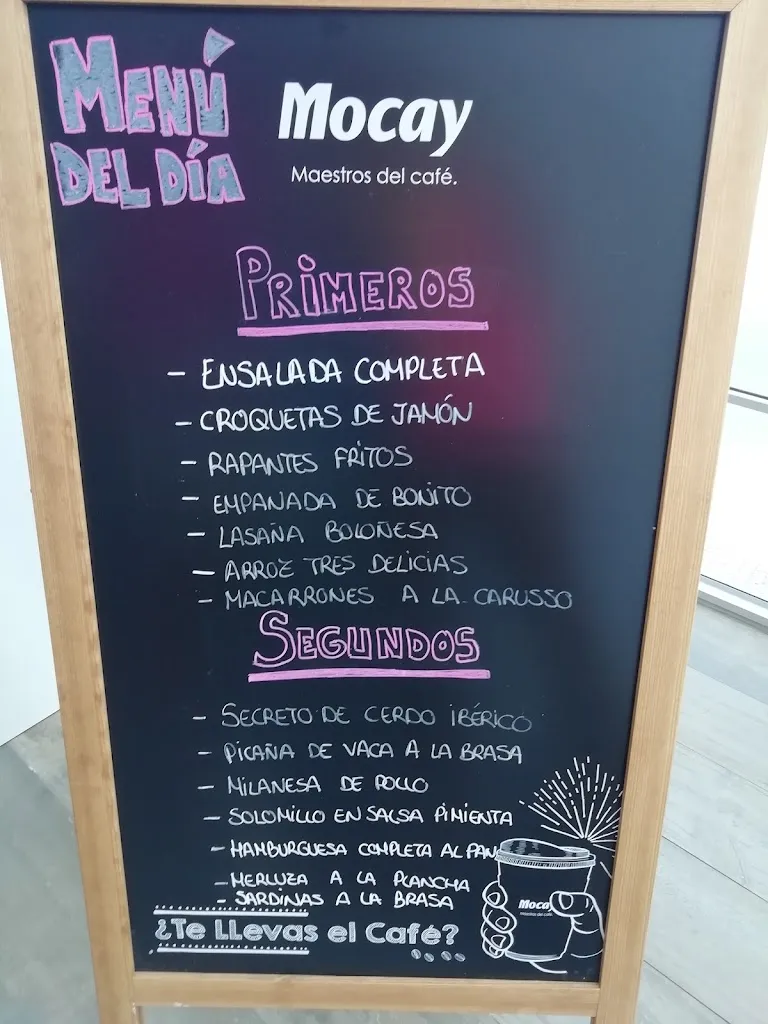 MENÚ
DEL DÍA
Mocay
Maestros del café.
PRIMEROS
- ENSALADA COMPLETA
- CROQUETAS DE JAMÓN
- RAPANTES FRITOS
- EMPANADA DE BONITO
- LASAÑA BOLOÑESA
- ARROZ TRES DELICIAS
- MACARRONES A LA CARUSSO
SEGUNDOS
- SECRETO DE CERDO IBÉRICO
- PICAÑA DE VACA A LA BRASA
- MILANESA DE POLLO
- SOLOMILLO EN SALSA PIMIENTA
- HAMBURGUESA COMPLETA AL PAN
- MERLUZA A LA PLANCHA
- SARDINAS A LA BRASA
Mocay
Maestros del café.
¿Te LLevas el Café?